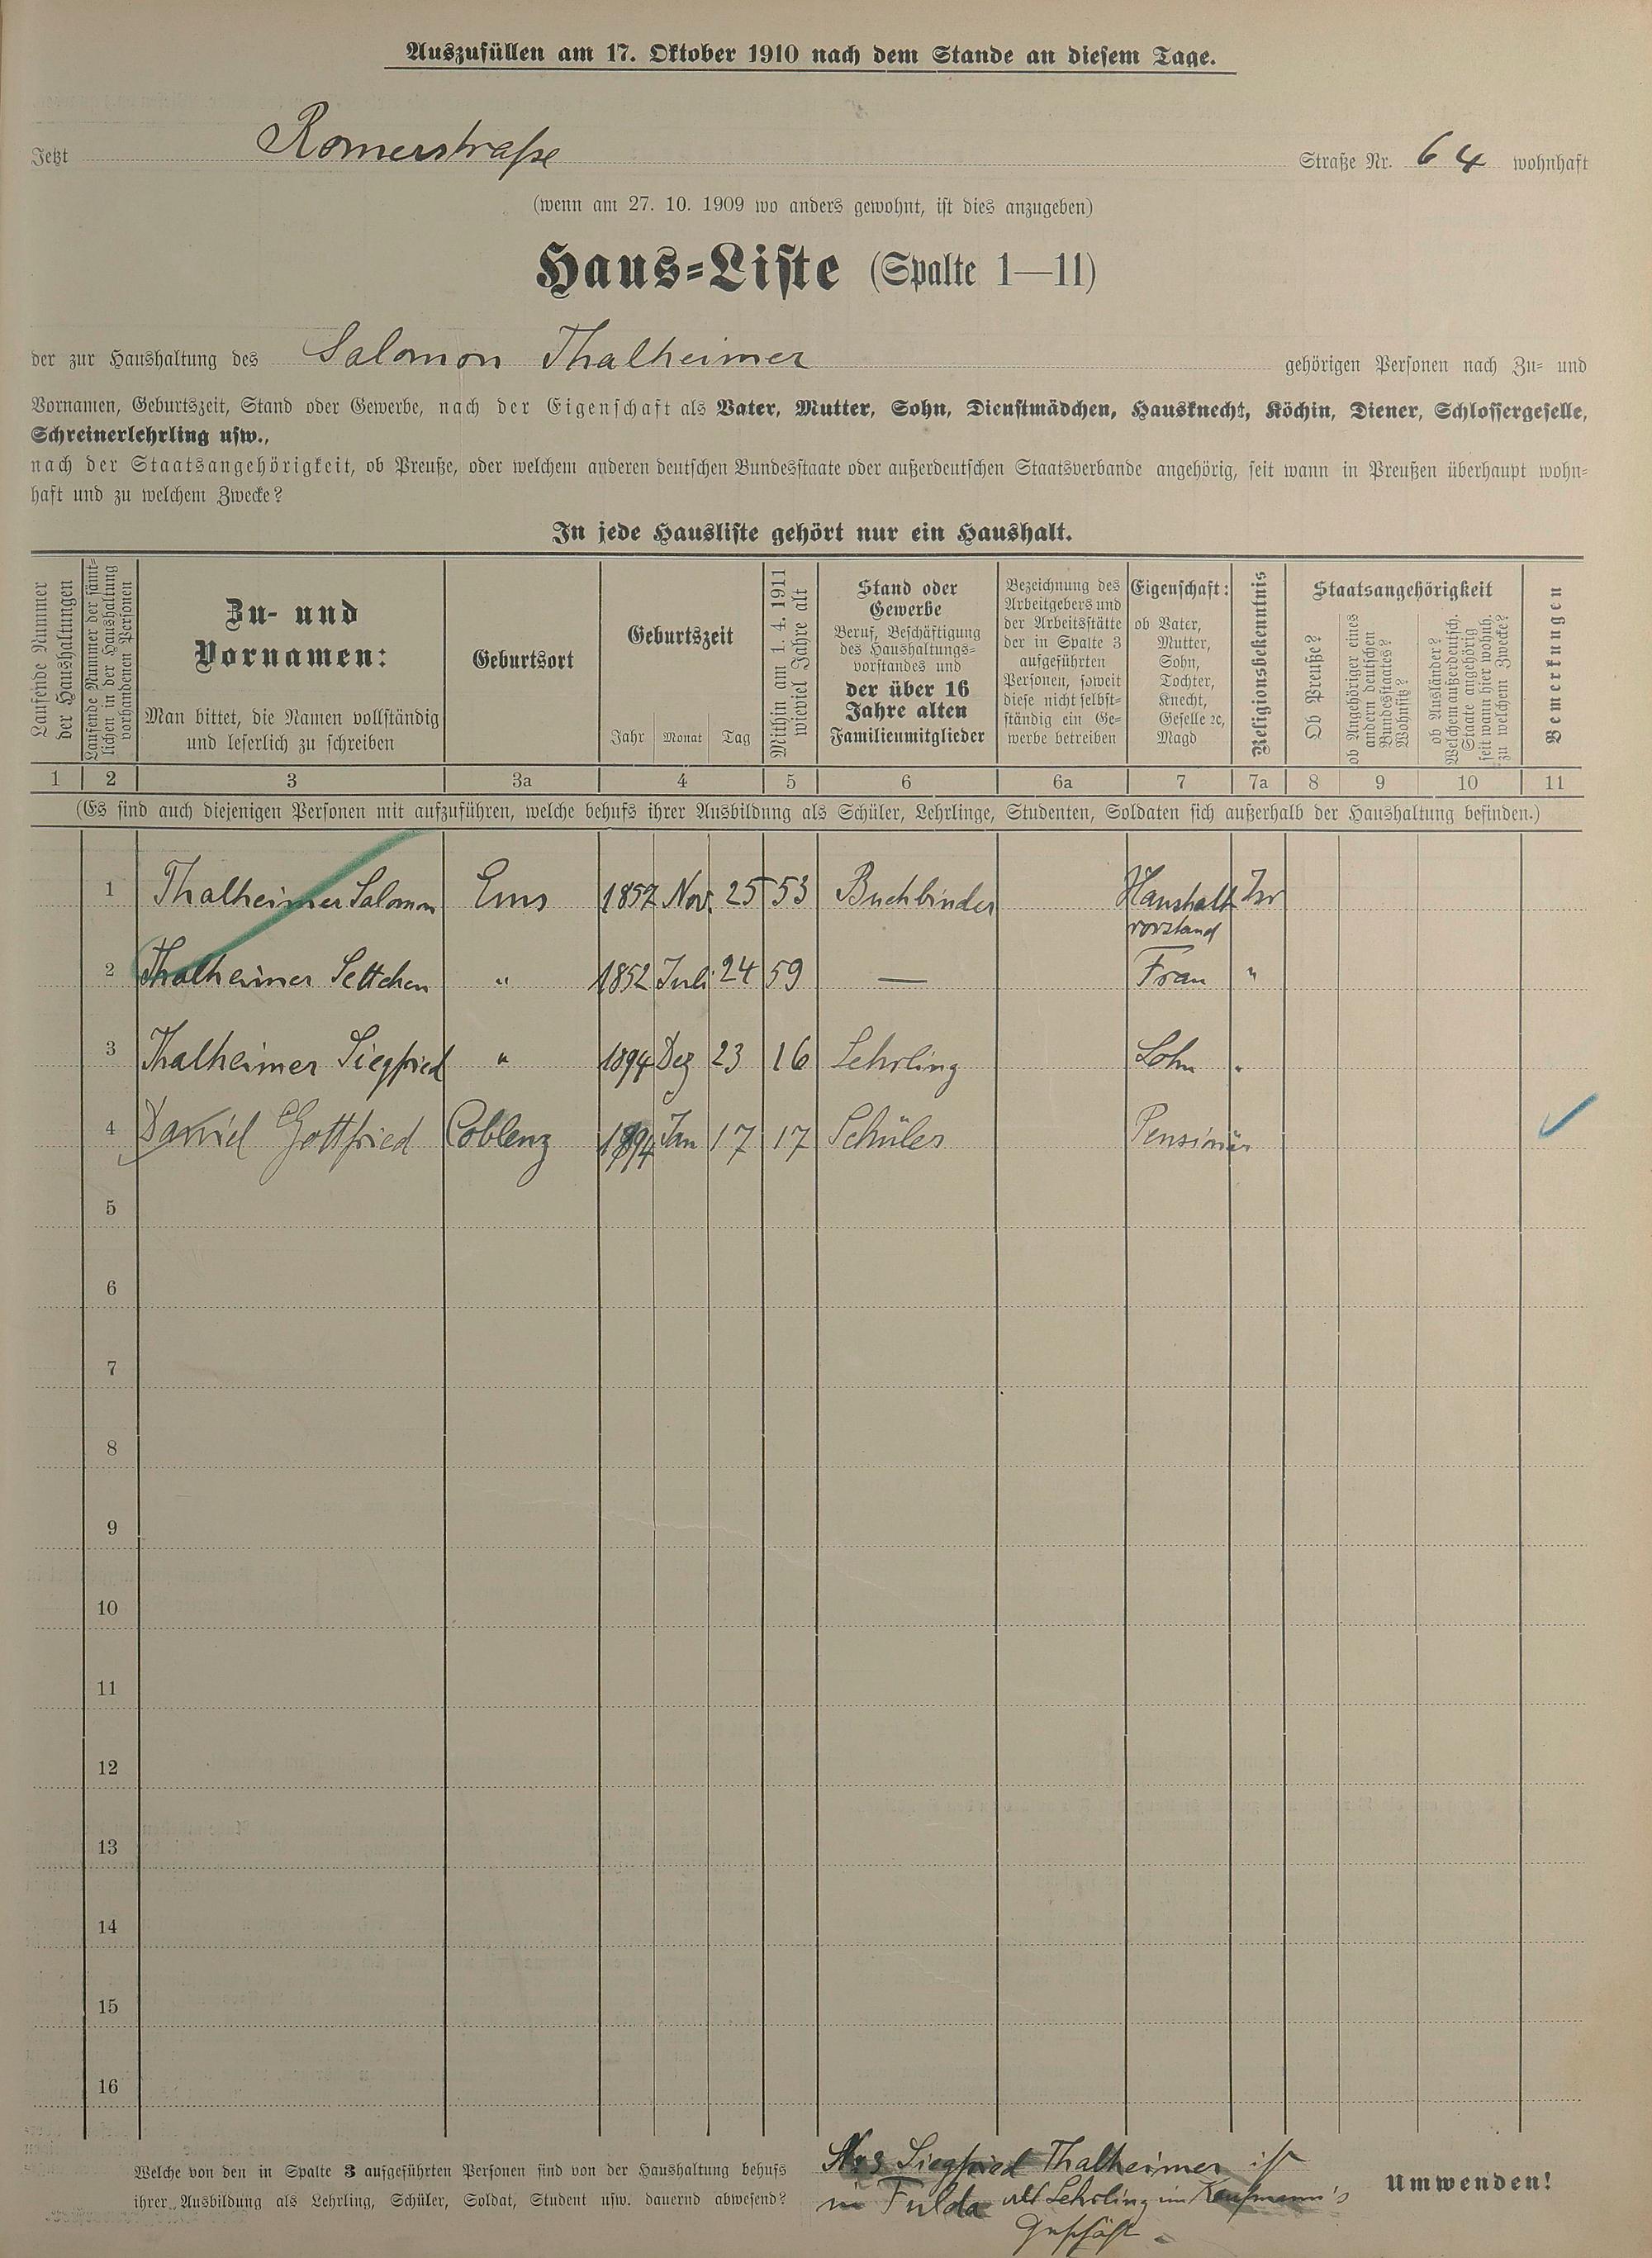 Auszufüllen am 17. Oktober 1910 nach dem Stande an diesem Tage.
Jetzt Romerstraße Straße Nr. 64 wohnhaft
(wenn am 27. 10. 1909 wo anders gewohnt, ist dies anzugeben)
Haus-Liste (Spalte 1—11)
der zur Haushaltung des Salomon Thalheimer gehörigen Personen nach Zu- und
Vornamen, Geburtszeit, Stand oder Gewerbe, nach der Eigenschaft als Vater, Mutter, Sohn, Dienstmädchen, Hausknecht, Köchin, Diener, Schlossergeselle,
Schreinerlehrling usw.,
nach der Staatsangehörigkeit, ob Preuße, oder welchem anderen deutschen Bundesstaate oder außerdeutschen Staatsverbande angehörig, seit wann in Preußen überhaupt wohn-
haft und zu welchem Zwecke?
In jede Hausliste gehört nur ein Haushalt.
Laufende Nummer
der Haushaltungen
Laufende Nummer der sämt-
lichen in der Haushaltung
vorhandenen Personen
Zu- und
Vornamen:
Man bittet, die Namen vollständig
und leserlich zu schreiben
Geburtsort
Geburtszeit
Jahr Monat Tag
Mithin am 1. 4. 1911
wieviel Jahre alt
Stand oder
Gewerbe
Beruf, Beschäftigung
des Haushaltungs-
vorstandes und
der über 16
Jahre alten
Familienmitglieder
Bezeichnung des
Arbeitgebers und
der Arbeitsstätte
der in Spalte 3
aufgeführten
Personen, soweit
diese nicht selbst-
ständig ein Ge-
werbe betreiben
Eigenschaft:
ob Vater,
Mutter,
Sohn,
Tochter,
Knecht,
Geselle ꝛc,
Magd
Religionsbekenntnis
Staatsangehörigkeit
Ob Preuße?
ob Angehöriger eines
andern deutschen
Bundesstaates?
Wohnsitz?
ob Ausländer?
Welchem außerdeutsch.
Staate angehörig
seit wann hier wohnh.
zu welchem Zwecke?
Bemerkungen
1 2 3 3a 4 5 6 6a 7 7a 8 9 10 11
(Es sind auch diejenigen Personen mit aufzuführen, welche behufs ihrer Ausbildung als Schüler, Lehrlinge, Studenten, Soldaten sich außerhalb der Haushaltung befinden.)
1 Thalheimer Salomon Ems 1857 Nov. 25 53 Buchbinder Haushalt Isr
vorstand
2 Thalheimer Settchen " 1852 Juli 24 59 — Frau "
3 Thalheimer Siegfried " 1894 Dez 23 16 Lehrling Sohn "
4 David Gottfried Coblenz 1894 Jan 17 17 Schüler Pensionär
5
6
7
8
9
10
11
12
13
14
15
16
Welche von den in Spalte 3 aufgeführten Personen sind von der Haushaltung behufs
ihrer Ausbildung als Lehrling, Schüler, Soldat, Student usw. dauernd abwesend?
No 3 Siegfried Thalheimer ist
in Fulda als Lehrling im Kaufmann's
Geschäft.
Umwenden!